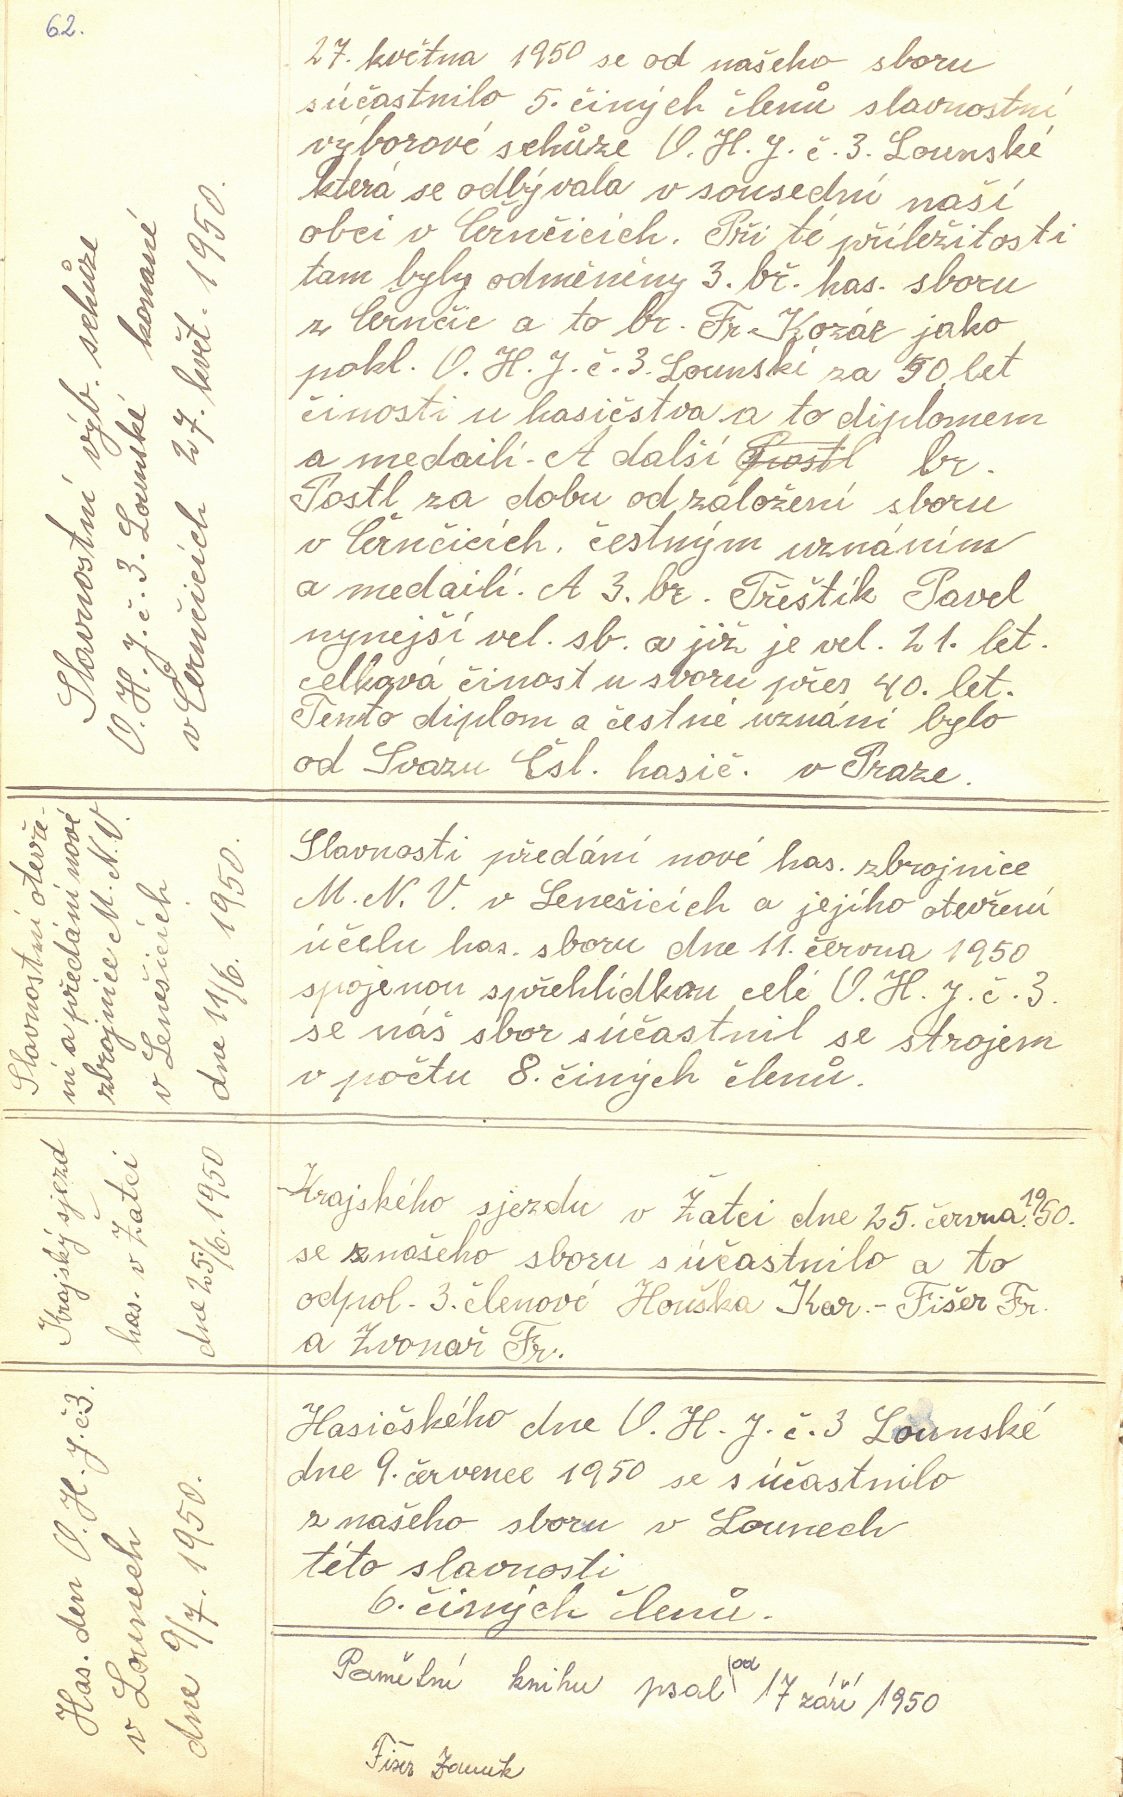 62.
Slavnostní výb. schůze
O. H. J. č. 3. Lounské konané
v Černčicích 27. květ. 1950.
27. května 1950 se od našeho sboru
súčastnilo 5. činých členů slavnostní
výborové schůze O. H. J. č. 3. Lounské
která se odbývala v sousední naší
obci v Černčicích. Při té příležitosti
tam byly odměněny 3. bř. has. sboru
z Černčic a to br. Fr. Kozár jako
pokl. O. H. J. č. 3. Lounské za 50 let
činosti u hasičstva a to diplomem
a medailí. A další br.
Postl za dobu od založení sboru
v Černčicích. čestným uznáním
a medailí. A 3. br. Třeštík Pavel
nynejší vel. sb. a již je vel. 21. let.
celková činost u sboru přes 40. let.
Tento diplom a čestné uznání bylo
od Svazu Čsl. hasič. v Praze.
Slavnostní otevře-
ní a předání nové
zbrojnice M. N. V.
v Lenešicích
dne 11/6. 1950.
Slavnosti předání nové has. zbrojnice
M. N. V. v Lenešicích a jejího otevření
účelu has. sboru dne 11. června 1950
spojenou spřehlídkou celé O. H. J. č. 3.
se náš sbor súčastnil se strojem
v počtu 8. činých členů.
Krajský sjezd
has. v Žatci
dne 25/6. 1950
Krajského sjezdu v Žatci dne 25. června 1950.
se znašeho sboru súčastnilo a to
odpol. 3. členové Houška Kar. - Fišer Fr.
a Zvonař Fr.
Has. den O. H. J. č. 3.
v Lounech
dne 9/7. 1950.
Hasičského dne O. H. J. č. 3 Lounské
dne 9. červenec 1950 se súčastnilo
z našeho sboru v Lounech
této slavnosti
6. činých členů.
Pamětní knihu psal od 17 září 1950
Fišer